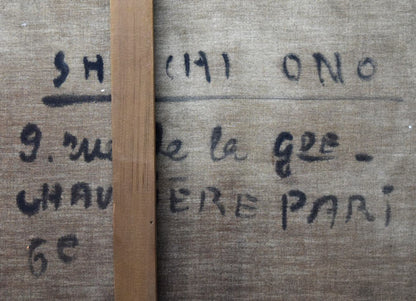 SH CHI ONO
9. rue de la gde -
CHAU ERE PARI
6e